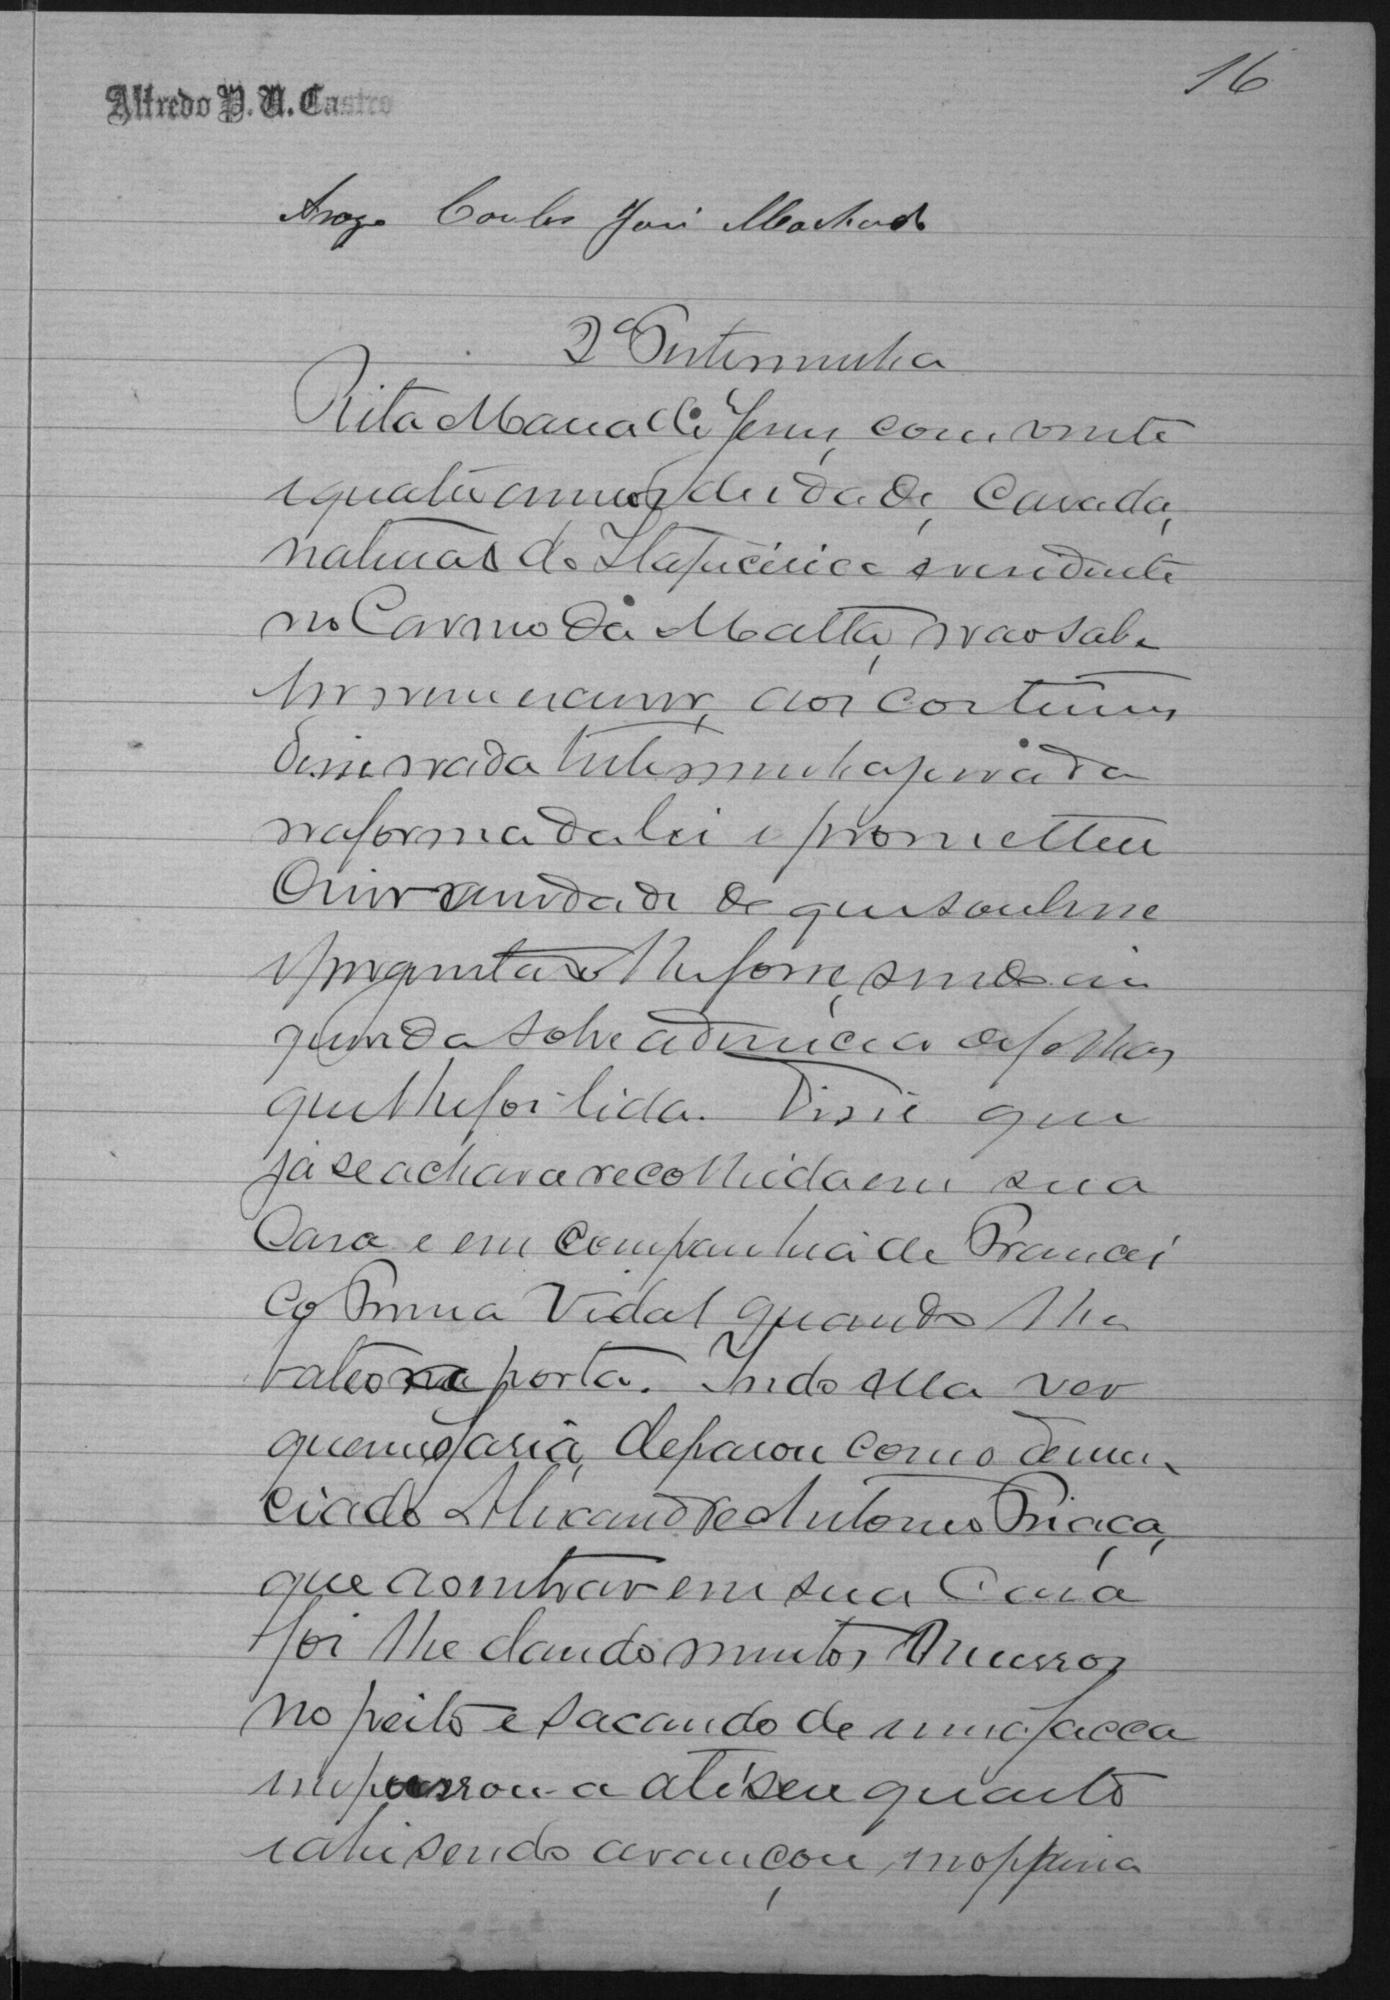 16
Alfredo P. U. Castro
Arogo Carlos José Machado
2ª Testemunha
Rita Maria de Jesus, com vinte
e quatro annos de idade, Casada,
natural do Itapecirica e residente
no Carmo da Matta, não sabe
ler nem escrever, aos costumes
disse nada testemunha jurada
na forma da lei e prometteu
dizer verdade do que soubesse
e perguntado lhe fosse, sendo in
querida sobre a denuncia de folhas
que lhe foi lida. Disse que
já se achava recolhida em sua
Casa e em companhia de Francis
co Vidal quando lhe
bateo na porta. Indo ella ver
quem seria, deparou com o denun
ciado Alexandre Antonio
que ao entrar em sua Casa
foi lhe dando muitos murros
no peito e sacando de uma facca
empurrou-a até seu quarto
e ahi sendo avançou